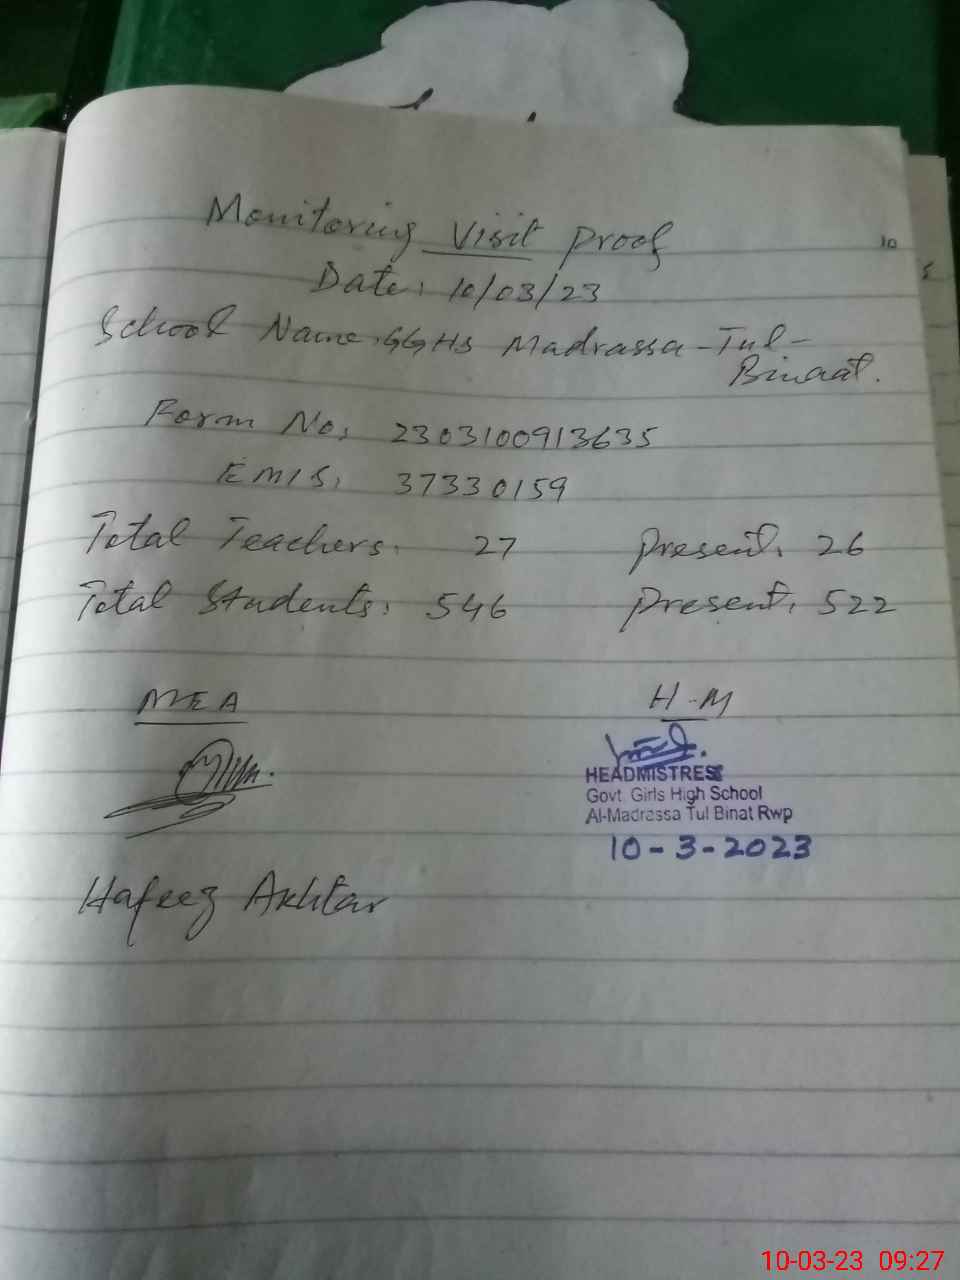 Monitoring Visit Proof
10
Date: 10/03/23
School Name: GGHS Madrassa-Tul-
Binaat.
Form No: 2303100913635
EMIS: 37330159
Total Teachers: 27 Present: 26
Total Students: 546 Present: 522
MEA H.M
HEADMISTRESS
Govt. Girls High School
Al-Madrassa Tul Binat Rwp
10-3-2023
Hafeez Akhtar
10-03-23 09:27